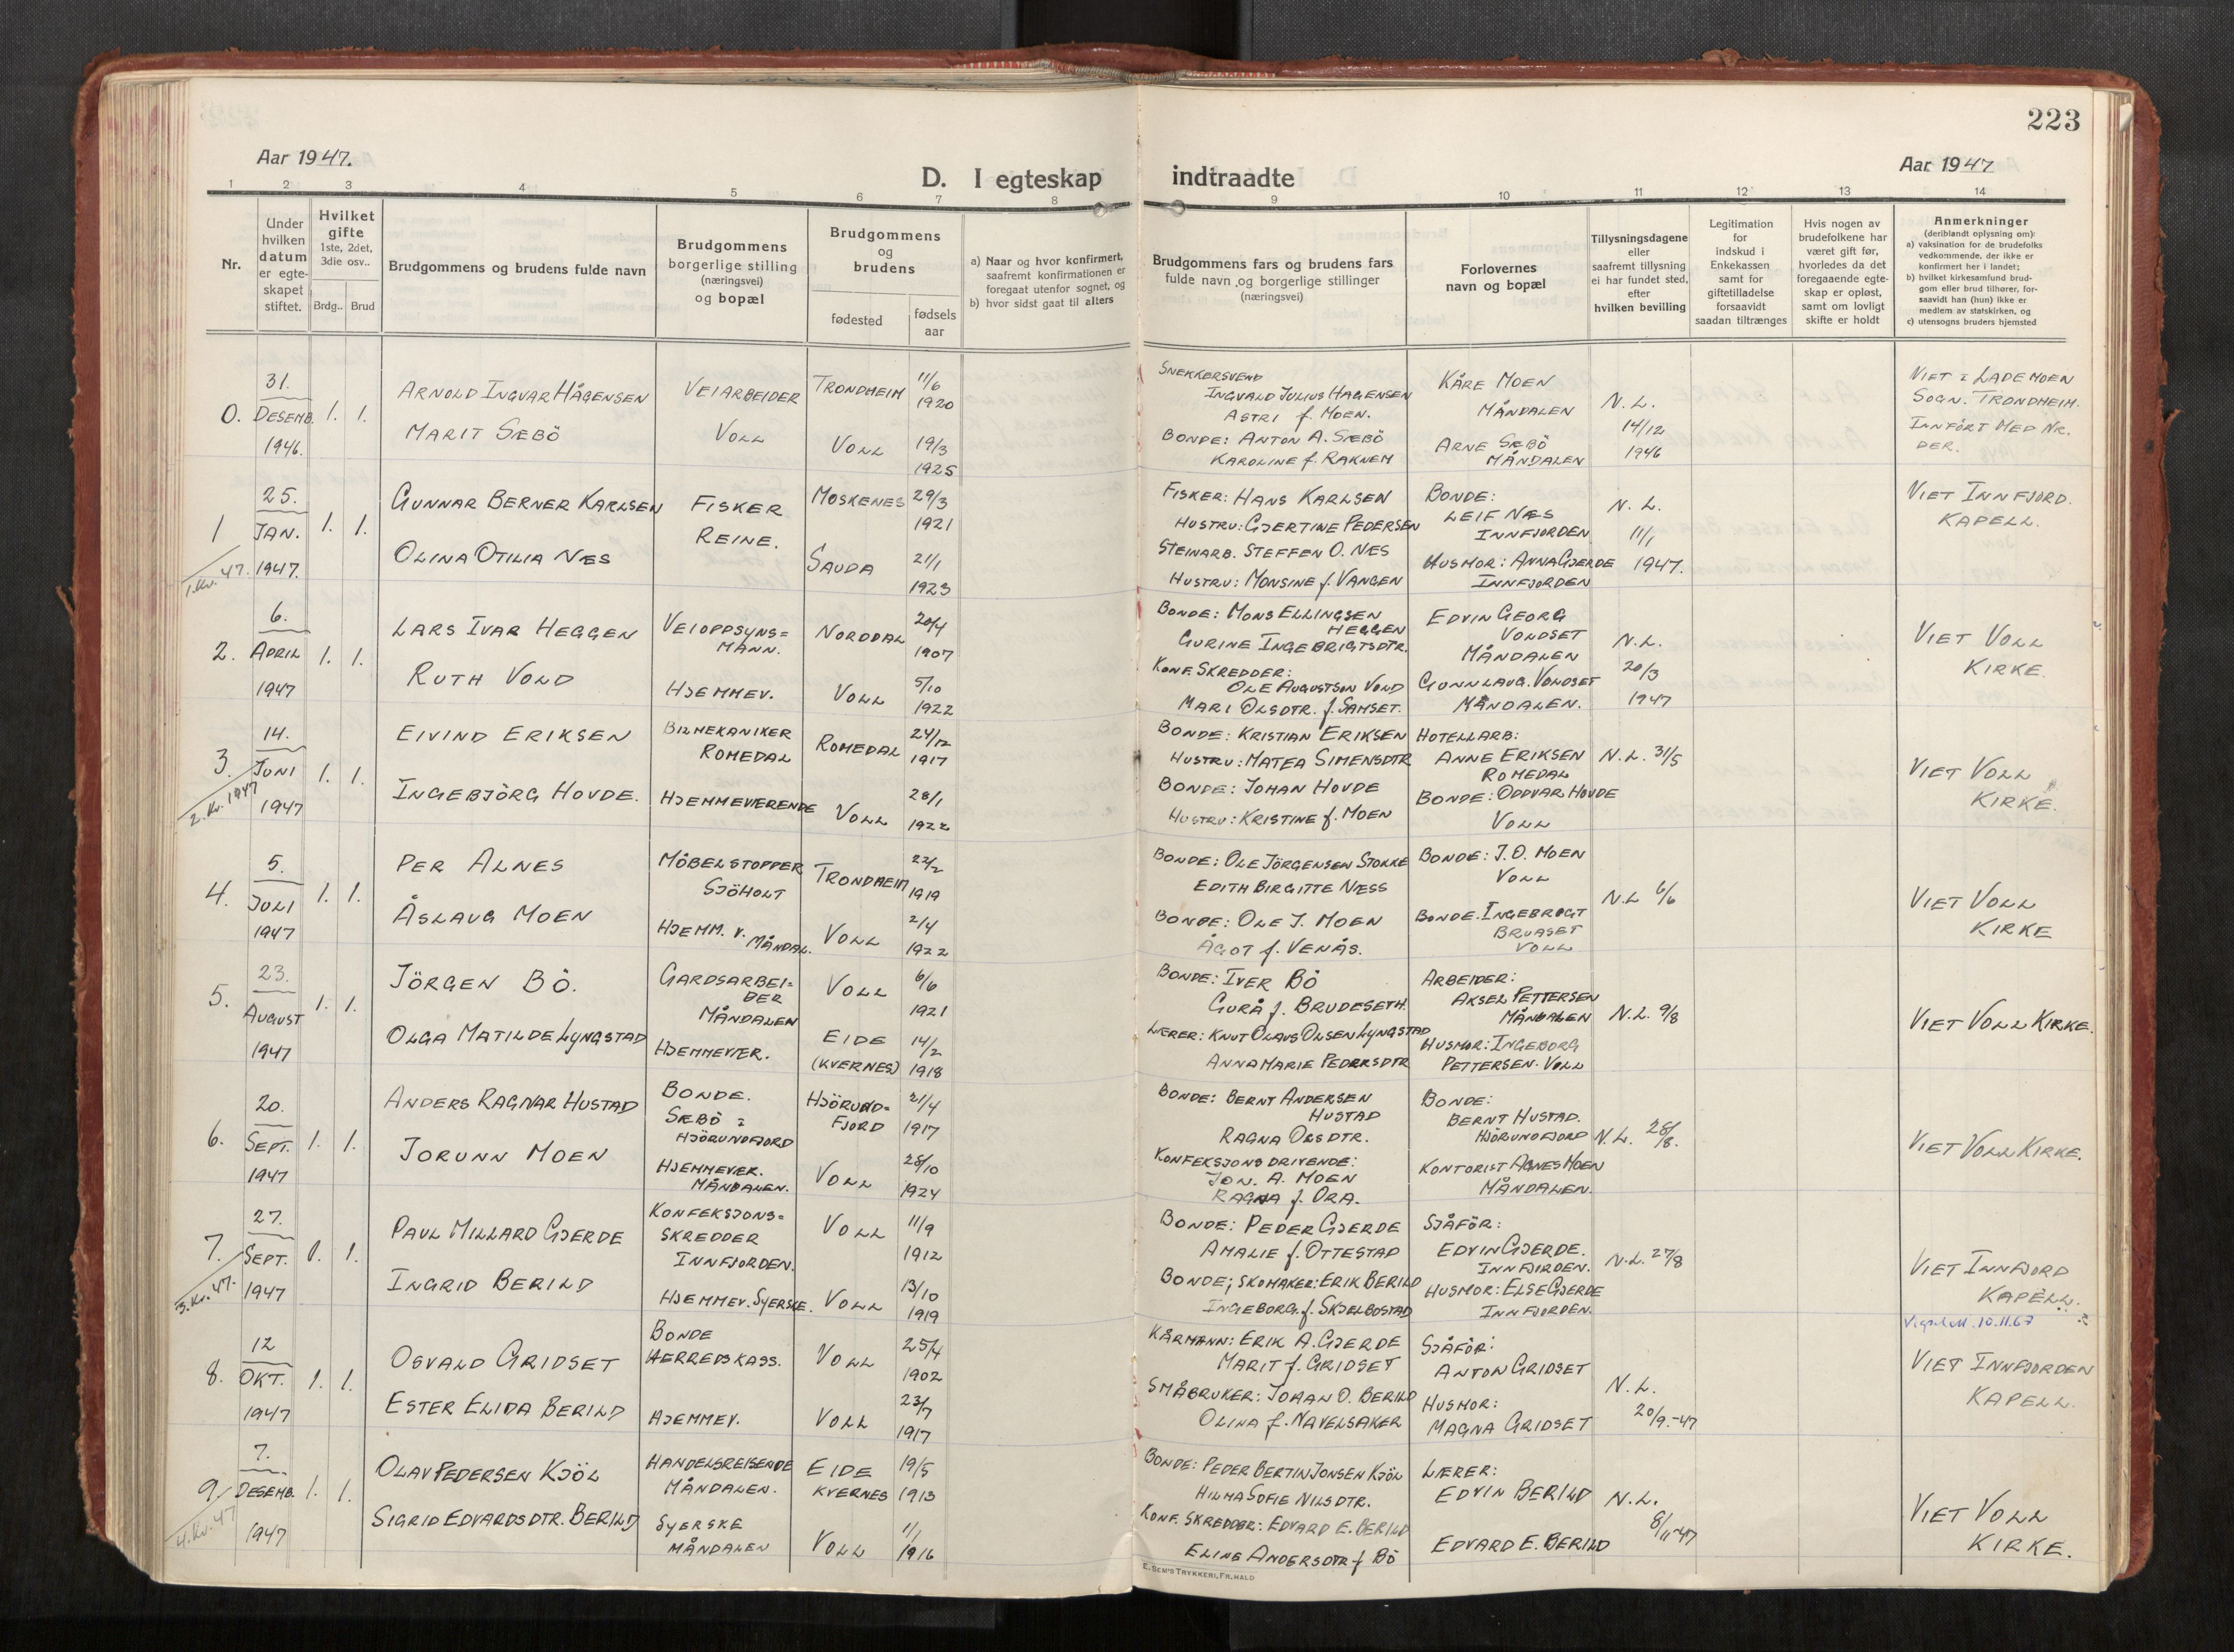 223
Aar 1947.
Aar 1947
D. I egteskap indtraadte
1 2 3 4 5 6 7 8 9 10 11 12 13 14
Nr.
Under hvilken datum er egteskapet stiftet.
Hvilket gifte
1ste, 2det, 3die osv..
Brdg.. Brud
Brudgommens og brudens fulde navn
Brudgommens borgerlige stilling (næringsvei) og bopæl
Brudgommens og brudens
fødested
fødsels aar
a) Naar og hvor konfirmert, saafremt konfirmationen er foregaat utenfor sognet, og
b) hvor sidst gaat til alters
Brudgommens fars og brudens fars fulde navn og borgerlige stillinger (næringsvei)
Forlovernes navn og bopæl
Tillysningsdagene eller saafremt tillysning ei har fundet sted, efter hvilken bevilling
Legitimation for indskud i Enkekassen samt for giftetilladelse forsaavidt saadan tiltrænges
Hvis nogen av brudefolkene har været gift før, hvorledes da det foregaaende egteskap er opløst, samt om lovligt skifte er holdt
Anmerkninger
(deriblandt oplysning om):
a) vaksination for de brudefolks vedkommende, der ikke er konfirmert her i landet;
b) hvilket kirkesamfund brudgom eller brud tilhører, forsaavidt han (hun) ikke er medlem av statskirken, og
c) utensogns bruders hjemsted
0. 31. Desemb. 1946. 1. 1.
Arnold Ingvar Hågensen
Marit Sæbö
Veiarbeider
Voll
Trondheim 11/6 1920
Voll 19/3 1925
Snekkersvend
Ingvald Julius Hagensen
Astri f. Moen.
Bonde: Anton A. Sæbö
Karoline f. Raknem
Kåre Moen
Måndalen
Arne Sæbö
Måndalen
N. L.
14/12
1946
Viet i Lademoen
Sogn. Trondheim.
Innfört med nr.
der.
1 25. Jan. 1947. 1. 1.
1. Kv. 47.
Gunnar Berner Karlsen
Olina Otilia Næs
Fisker
Reine.
Moskenes 29/3 1921
Sauda 21/1 1923
Fisker: Hans Karlsen
Hustru: Gjertine Pedersen
Steinarb. Steffen O. Næs
Hustru: Monsine f. Vangen
Bonde:
Leif Næs
Innfjorden
Husmor: Anna Gjerde
Innfjorden
N. L.
11/1
1947.
Viet Innfjord.
Kapell.
2. 6. April 1947 1. 1.
Lars Ivar Heggen
Ruth Vold
Veioppsyns=
mann.
Hjemmev.
Norddal 20/4 1907
Voll 5/10 1922
Bonde: Mons Ellingsen
Heggen
Gurine Ingebrigtsdtr.
Konf. Skredder:
Ole Augustson Vold
Mari Olsdtr. f. Samset.
Edvin Georg
Voldset
Måndalen
Gunnlaug. Voldset
Måndalen.
N. L.
20/3
1947
Viet Voll
Kirke.
3. 14. Juni 1947 1. 1.
2. Kv. 1947
Eivind Eriksen
Ingebjörg Hovde.
Bilmekaniker
Romedal
Hjemmeværende
Romedal 24/12 1917
Voll 28/1 1922
Bonde: Kristian Eriksen
Hustru: Matea Simensdtr
Bonde: Johan Hovde
Hustru: Kristine f. Moen
Hotellarb:
Anne Eriksen
Romedal
Bonde: Oddvar Hovde
Voll
N. L. 31/5
Viet Voll
Kirke.
4. 5. Juli 1947 1. 1.
Per Alnes
Åslaug Moen
Möbelstopper
Sjöholt
Hjemm. v. Måndal.
Trondheim 22/2 1919
Voll 2/4 1922
Bonde: Ole Jörgensen Stokke
Edith Birgitte Næss
Bonde: Ole J. Moen
Ågot f. Venås.
Bonde: J. O. Moen
Voll
Bonde. Ingebrigt
Bruaset
Voll
N. L 6/6
Viet Voll
Kirke
5. 23. August 1947 1. 1.
Jörgen Bö.
Olga Matilde Lyngstad
Gardsarbei=
der
Måndalen
Hjemmevær.
Voll 6/6 1921
Eide (Kvernes) 14/2 1918
Bonde: Iver Bö
Gurå f. Brudeseth.
Lærer: Knut Olaus Olsen Lyngstad
Anna Marie Pedersdtr
Arbeider:
Aksel Pettersen
Måndalen
Husmor: Ingeborg
Pettersen. Voll
N. L. 9/8
Viet Voll Kirke.
6. 20. Sept. 1947 1. 1.
Anders Ragnar Hustad
Jorunn Moen
Bonde.
Sæbö i
Hjörundfjord
Hjemmevær.
Måndalen.
Hjörund=
fjord 21/4 1917
Voll 28/10 1924
Bonde: Bernt Andersen
Hustad
Ragna Olsdtr.
Konfeksjonsdrivende:
Jon. A. Moen
Ragna f. Ora.
Bonde:
Bernt Hustad.
Hjörundfjord
Kontorist Agnes Moen
Måndalen.
N. L. 28/8.
Viet Voll Kirke.
7. 27. Sept. 1947 1. 1.
3. Kv. 47.
Paul Millard Gjerde
Ingrid Berild
Konfeksjons=
skredder
Innfjorden.
Hjemmev. Syerske.
Voll 11/9 1912
Voll 13/10 1919
Bonde: Peder Gjerde
Amalie f. Ottestad
Bonde; Skomaker: Erik Berild
Ingeborg. f. Skjelbostad
Sjåför:
Edvin Gjerde.
Innfjorden.
Husmor: Else Gjerde
Innfjorden.
N. L. 27/8
Viet Innfjord
Kapell.
10.11.67
8. 12 Okt. 1947 1. 1.
Osvald Gridset
Ester Elida Berild
Bonde
Herredskass.
Hjemmev.
Voll 25/4 1902
Voll 23/7 1917
Kårmann: Erik A. Gjerde
Marit f. Gridset
Småbruker: Johan O. Berild
Olina f. Navelsaker
Sjåför:
Anton Gridset
Husmor:
Magna Gridset
N. L.
20/9.-47
Viet Innfjorden
Kapell.
9. 7. Desemb. 1947 1. 1.
4. Kv. 47
Olav Pedersen Kjöl
Sigrid Edvardsdtr. Berild
Handelsreisende
Måndalen.
Syerske
Måndalen
Eide
Kvernes 19/5 1913
Voll 11/1 1916
Bonde: Peder Bertin Jonsen Kjöl
Hilma Sofie Nilsdtr.
Konf. Skredder: Edvard E. Berild
Eline Andersdtr f Bö
Lærer:
Edvin Berild
Edvard E. Berild
N. L.
8/11-47
Viet Voll
Kirke.
E. Sem's Trykkeri, Fr.hald